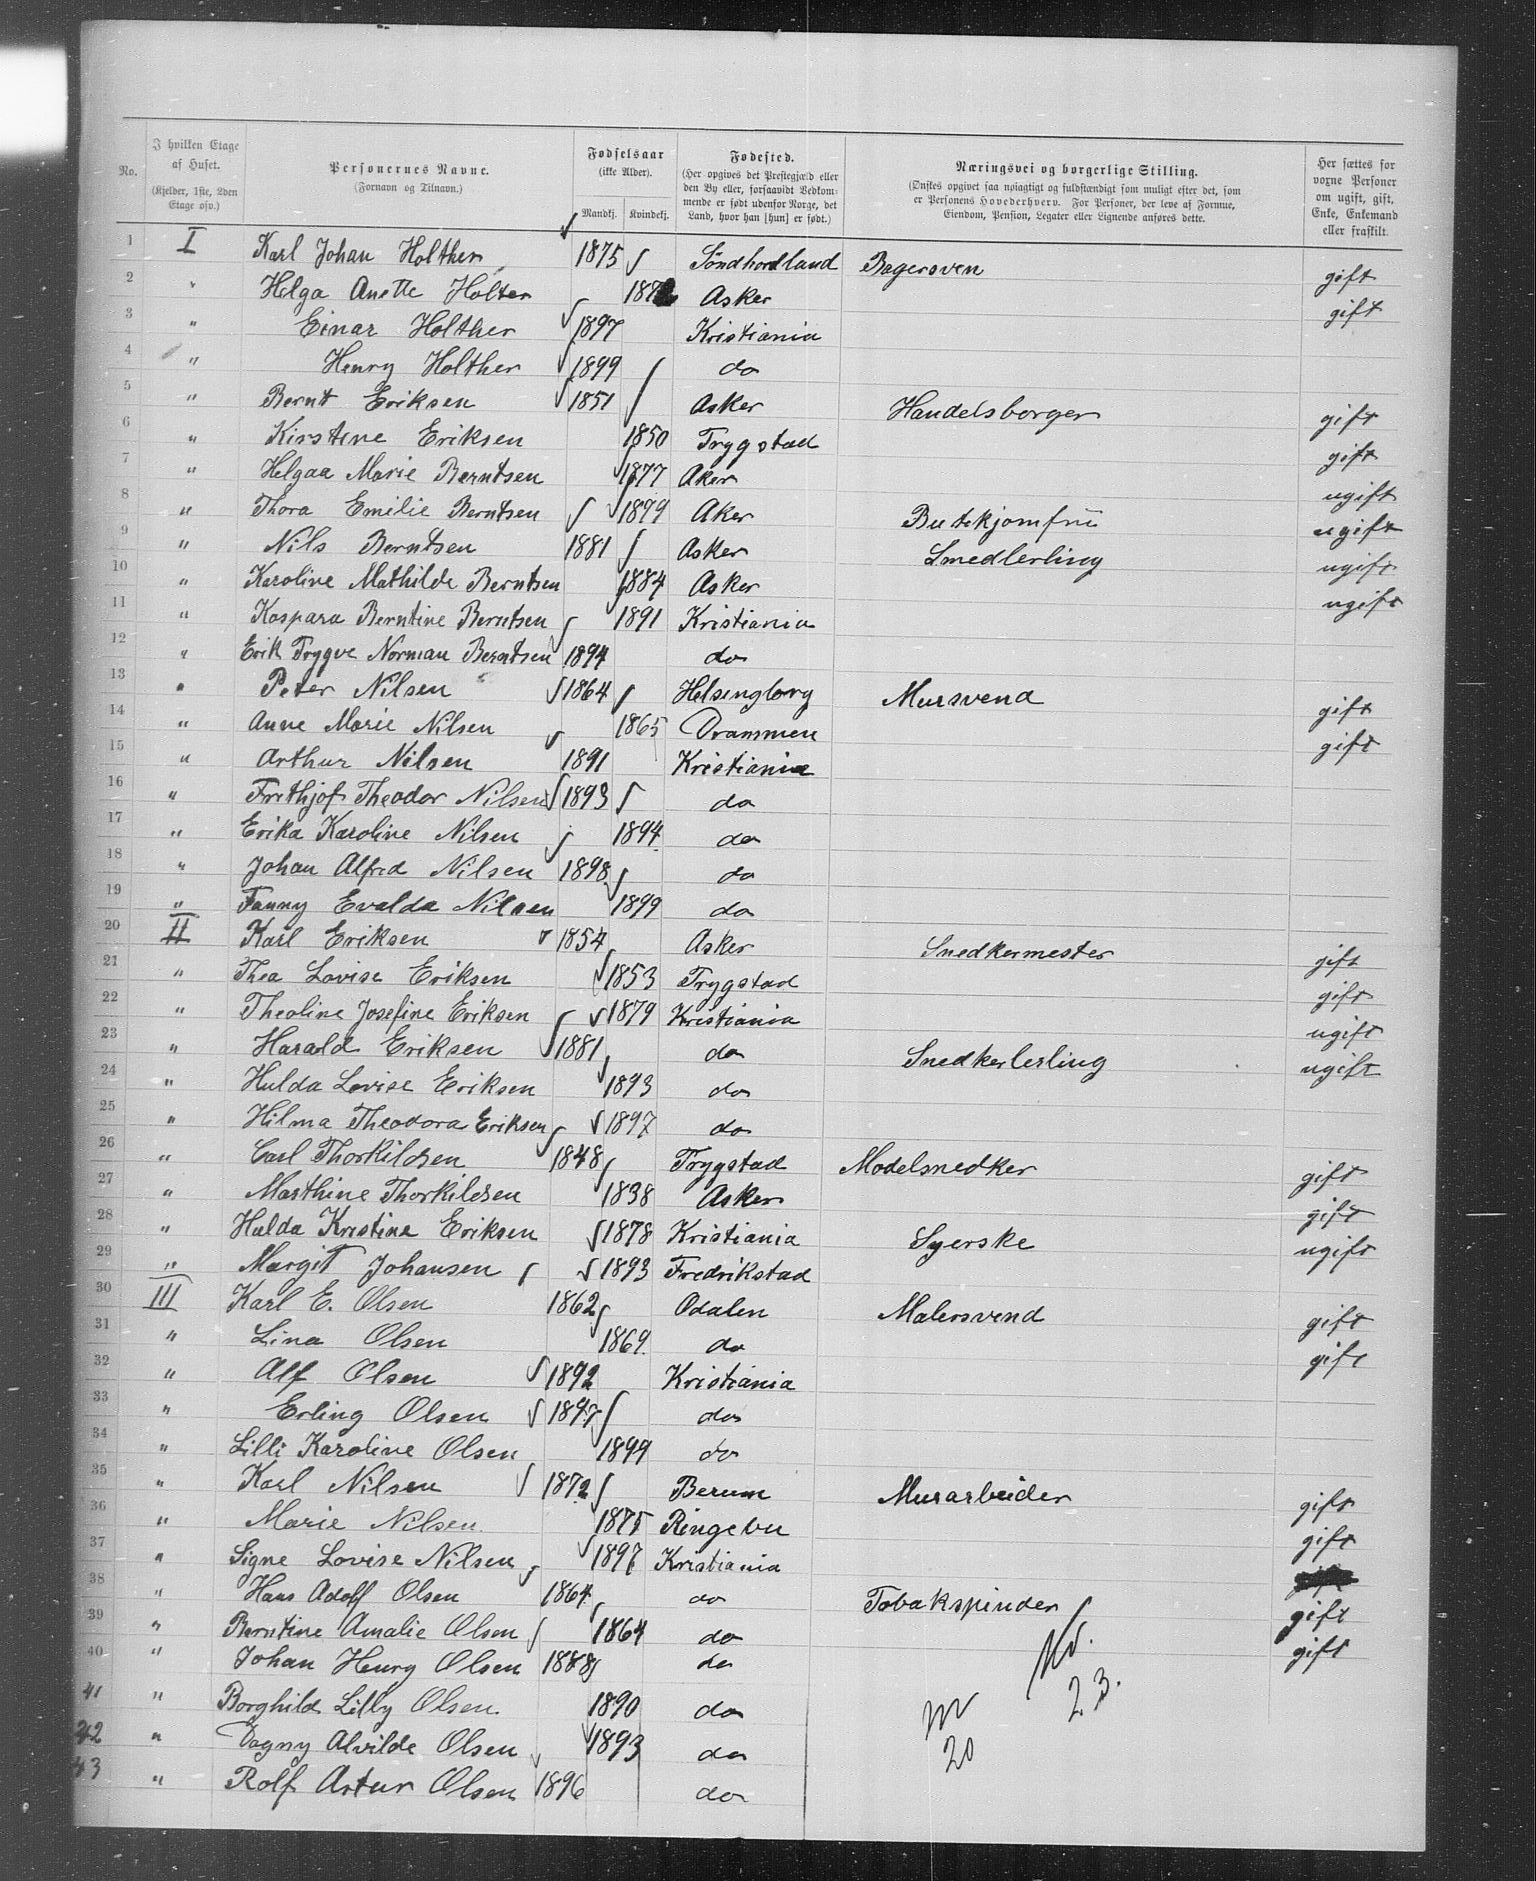 No.
I hvilken Etage af Huset.
(Kjelder, 1ste, 2den Etage osv.)
Personernes Navne.
(Fornavn og Tilnavn.)
Fødselsaar
(ikke Alder).
Mandkj. Kvindekj.
Fødested.
(Her opgives det Prestegjæld eller den By eller, forsaavidt Vedkommende er født udenfor Norge, det Land, hvor han [hun] er født.)
Næringsvei og borgerlige Stilling.
(Ønskes opgivet saa nøiagtigt og fuldstændigt som muligt efter det, som er Personens Hovederhverv. For Personer, der leve af Formue, Eiendom, Pension, Legater eller Lignende anføres dette.
Her sættes for voxne Personer om ugift, gift, Enke, Enkemand eller fraskilt.
1 I Karl Johan Holther 1875 Söndhordland Bagersven gift
2 " Helga Anette Holter Asker gift
3 " Einar Holther 1897 Kristiania
4 " Henry Holther 1899 do
5 " Bernt Eriksen 1851 Asker Handelsborger gift
6 " Kirstine Eriksen 1850 Trygstad gift
7 " Helgaa Marie Berntsen 1877 Aker ugift
8 " Thora Emilie Berntsen 1879 Aker Butikjomfru ugift
9 " Nils Berntsen 1881 Asker Smedlerling ugift
10 " Karoline Mathilde Berntsen 1884 Asker ugift
11 " Kaspara Berntine Berntsen 1891 Kristiania
12 " Erik Trygve Norman Berntsen 1894 do
13 " Peter Nilsen 1864 Helsingborg Mursvend gift
14 " Anne Marie Nilsen 1865 Drammen gift
15 " Arthur Nilsen 1891 Kristiania
16 " Frithjof Theodor Nilsen 1893 do
17 " Erika Karoline Nilsen 1894 do
18 " Johan Alfred Nilsen 1898 do
19 " Fanny Evalda Nilsen 1899 do
20 II Karl Eriksen 1854 Asker Snedkermester gift
21 " Thea Lovise Eriksen 1853 Trygstad gift
22 " Theoline Josefine Eriksen 1879 Kristiania ugift
23 " Harald Eriksen 1881 do Snedkerlerling ugift
24 " Hulda Lovise Eriksen 1893 do
25 " Hilma Theodora Eriksen 1897 do
26 " Carl Thorkildsen 1848 Trygstad Modelsnedker gift
27 " Marthine Thorkildsen 1838 Asker gift
28 " Hulda Kristine Eriksen 1878 Kristiania Syerske ugift
29 " Margit Johansen 1893 Fredrikstad
30 III Karl E. Olsen 1862 Odalen Malersvend gift
31 " Lina Olsen 1869 do gift
32 " Alf Olsen 1892 Kristiania
33 " Erling Olsen 1897 do
34 " Lilli Karoline Olsen 1899 do
35 " Karl Nilsen 1872 Berum Murarbeider gift
36 " Marie Nilsen 1875 Ringebu gift
37 " Signe Lovise Nilsen 1897 Kristiania
38 " Hans Adolf Olsen 1864 do Tobakspinder gift
39 " Berntine Amalie Olsen 1864 do gift
40 " Johan Henry Olsen 1888 do
41 " Borghild Lilly Olsen 1890 do
42 " Dagny Alvilde Olsen 1893 do
43 " Rolf Artur Olsen 1896 do
Kv. 23.
M 20